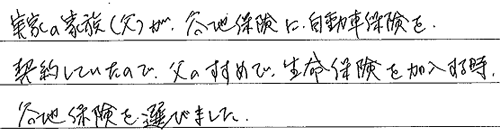 実家の家族(父)が、谷地保険に自動車保険を.
契約していたので、父のすすめで、生命保険を加入する時、
谷地保険を選びました.